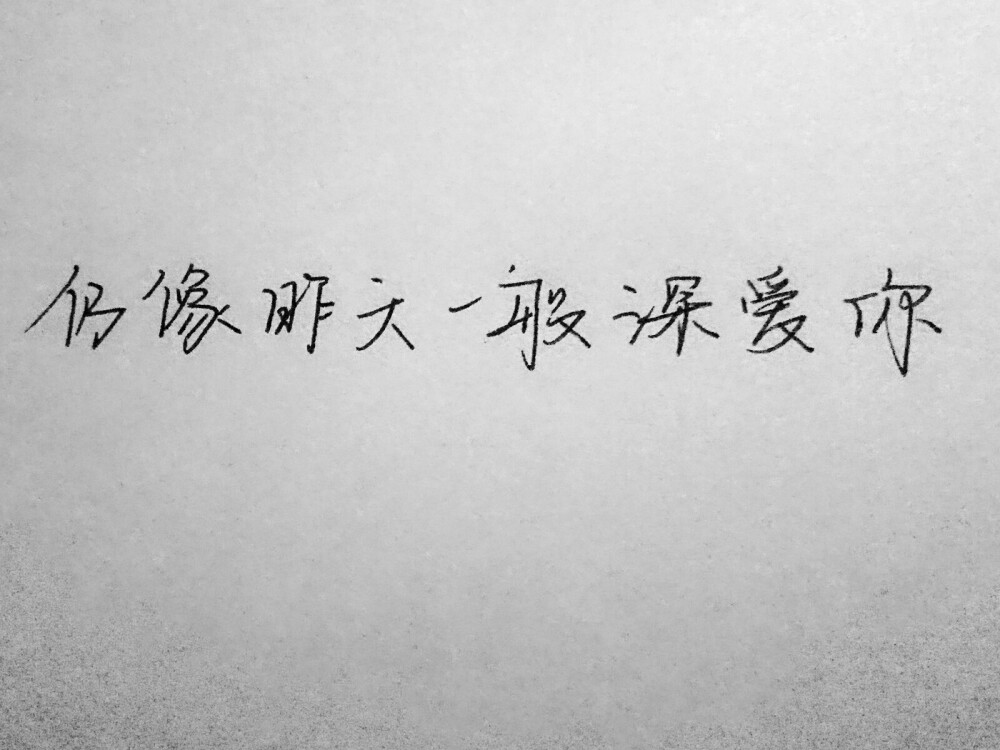 仍像昨天一般深爱你